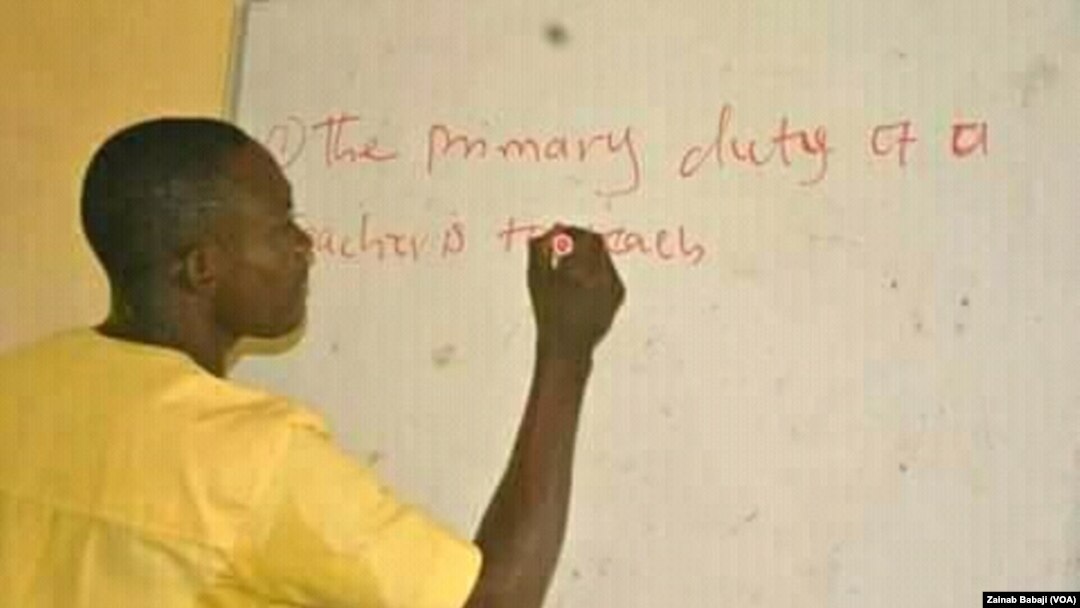 1) The primary duty of a
teacher is to teach
Zainab Babaji (VOA)